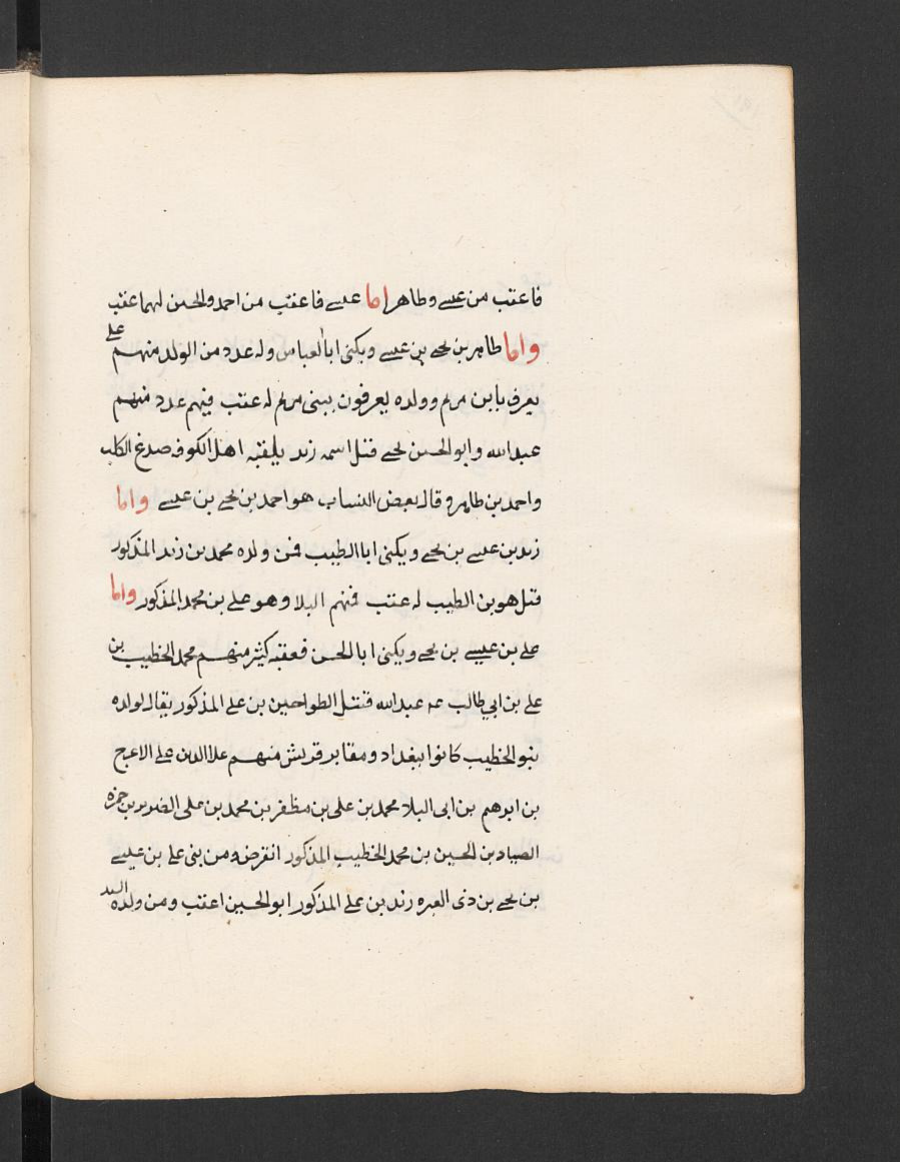 فاعقب من عيسى وطاهر اما عيسى فاعقب من احمد والحسن لهما عقب
واما طاهر بن يحيى بن عيسى ويكنى ابا العباس وله عدد من الولد منهم على
يعرف بابن مريم وولده يعرفون ببنى مريم له عقب فيهم عدد منهم
عبدالله وابو الحسن يحيى قتل اسمه زيد يلقبه اهل الكوفه صدغ الكلب
واحمد بن طاهر وقال بعض النساب هو احمد بن يحيى بن عيسى واما
زيد بن عيسى بن يحيى ويكنى ابا الطيب فمن ولده محمد بن زيد المذكور
قتل هو بن الطيب له عقب فمنهم البلا وهو على بن محمد المذكور واما
على بن عيسى بن يحيى ويكنى ابا الحسن فعقبه كثير منهم محمد الخطيب بن
على بن ابي طالب عبدالله قتيل الطواحين بن على المذكور يقال لولده
بنو الخطيب كانوا ببغداد ومقابر قريش منهم علا الدين على الاعرج
بن ابرهيم بن ابى البلا محمد بن على بن مظفر بن محمد بن على الضرير بن حمزه
الصياد بن الحسين بن محمد الخطيب المذكور انقرض ومن بنى على بن عيسى
بن يحيى بن ذى العبره زيد بن على المذكور ابو الحسين اعقب ومن ولده السيد